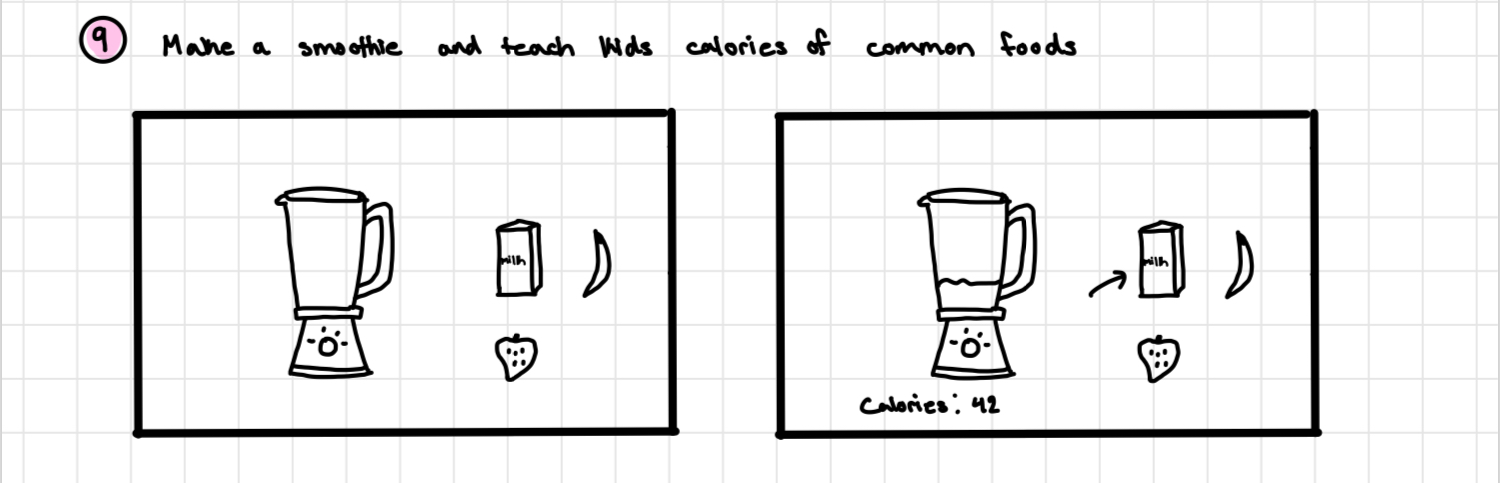 9 Make a smoothie and teach kids calories of common foods
milk
milk
Calories: 42